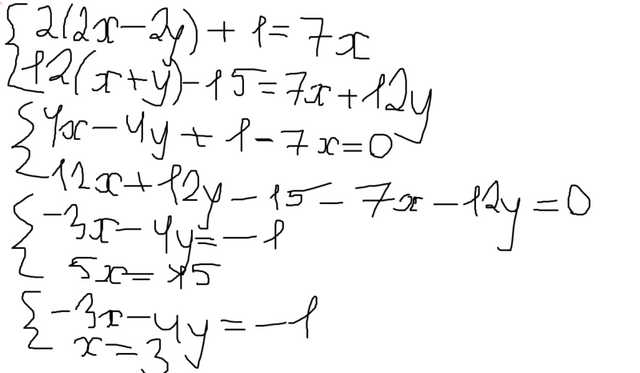 { 2(2x-2y)+1=7x
{ 12(x+y)-15=7x+12y
{ 4x-4y+1-7x=0
{ 12x+12y-15-7x-12y=0
{ -3x-4y=-1
{ 5x=15
{ -3x-4y=-1
{ x=3